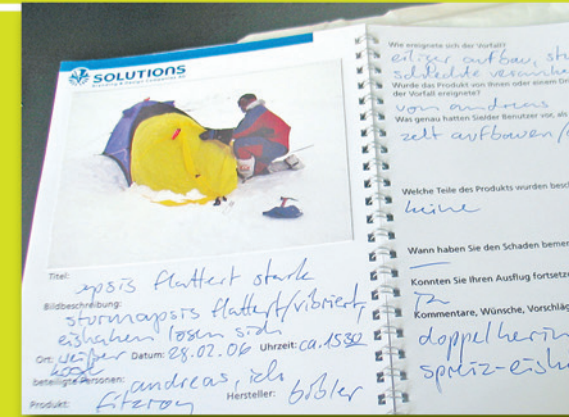 SOLUTIONS
Branding & Design Companies AG
Titel: apsis flattert stark
Bildbeschreibung:
sturmapsis flattert/vibriert,
eishaken lösen sich
Ort: weißer Datum: 28.02.06 Uhrzeit: ca.
kogl
beteiligte Personen: andreas, ich
Produkt: fitzroy Hersteller: bibler
Wie ereignete sich der Vorfall?
eiliger aufbau,
schlechte
Wurde das Produkt von Ihnen oder einem
der Vorfall ereignete?
von andreas
Was genau hatten Sie/der Benutzer vor, als
zelt aufbauen/
Welche Teile des Produkts wurden
keine
Wann haben Sie den Schaden
—
Konnten Sie Ihren Ausflug
ja
Kommentare, Wünsche,